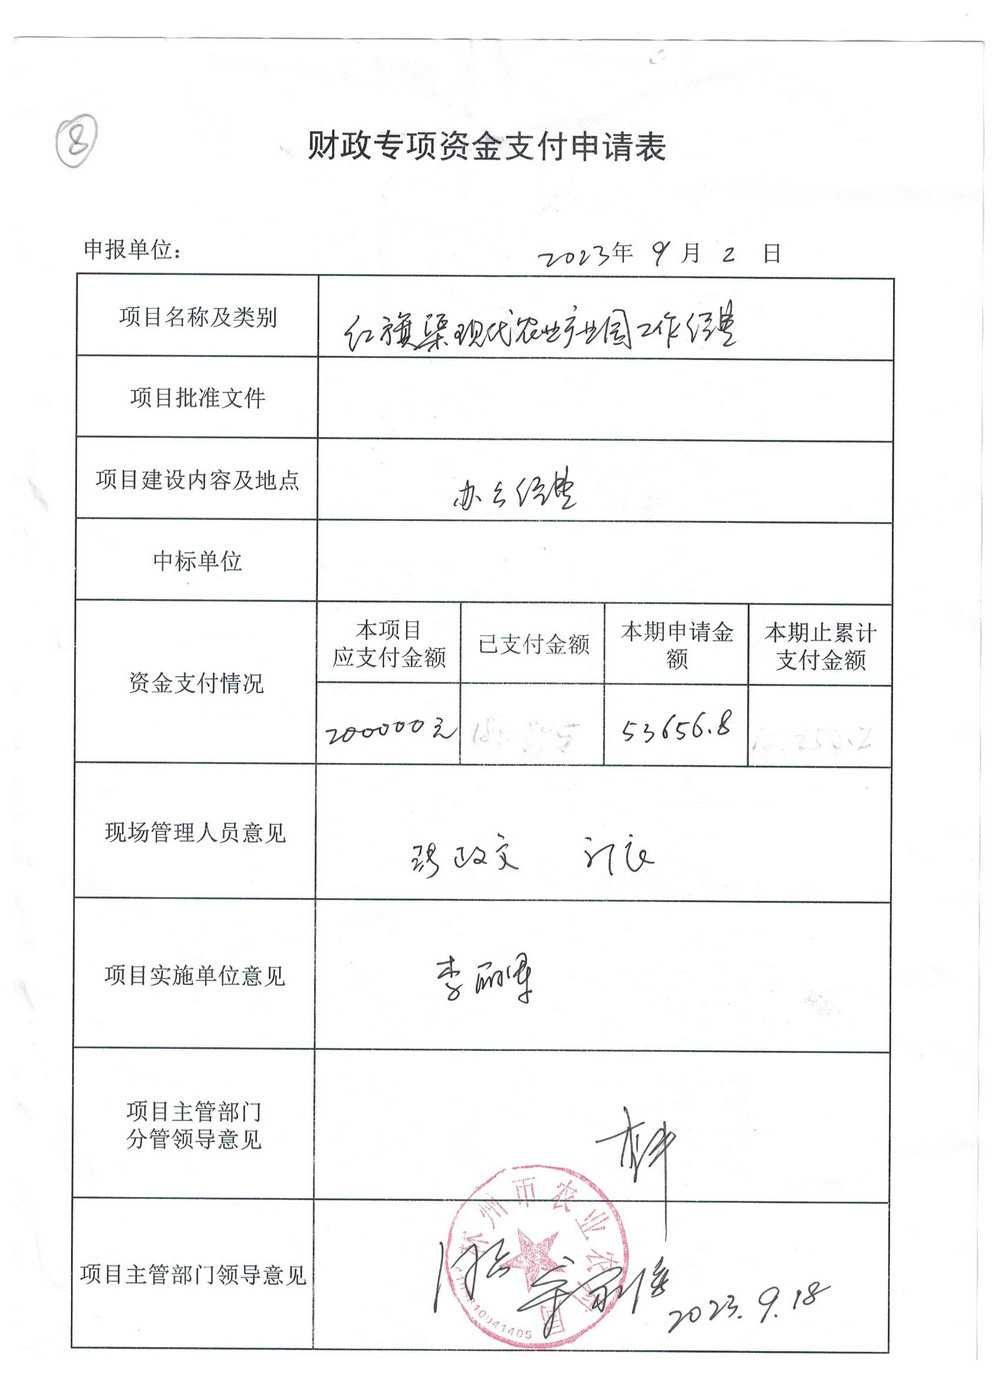 8
财政专项资金支付申请表
申报单位： 2023年 9月 2 日
项目名称及类别 红旗渠现代农业产业园工作经费
项目批准文件
项目建设内容及地点 办公经费
中标单位
资金支付情况
本项目
应支付金额
已支付金额
本期申请金
额
本期止累计
支付金额
200000元
53656.8
现场管理人员意见
项目实施单位意见 李丽
项目主管部门
分管领导意见
林州市农业农村局
项目主管部门领导意见 同意
2023.9.18